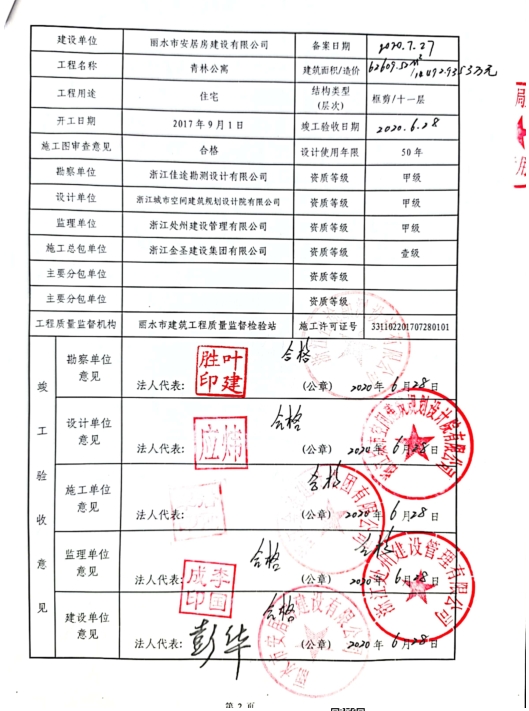 建设单位 丽水市安居房建设有限公司 备案日期 2020.7.27
工程名称 青林公寓 建筑面积/造价 62609.52m²/
工程用途 住宅 结构类型(层次) 框剪/十一层
开工日期 2017年9月1日 竣工验收日期 2020.6.28
施工图审查意见 合格 设计使用年限 50年
勘察单位 浙江佳途勘测设计有限公司 资质等级 甲级
设计单位 浙江城市空间建筑规划设计院有限公司 资质等级 甲级
监理单位 浙江处州建设管理有限公司 资质等级 甲级
施工总包单位 浙江金圣建设集团有限公司 资质等级 壹级
主要分包单位 资质等级
主要分包单位 资质等级
工程质量监督机构 丽水市建筑工程质量监督检验站 施工许可证号 331102201707280101
竣工验收意见
勘察单位意见 合格
法人代表: 叶建胜印 (公章) 2020年6月28日
设计单位意见 合格
法人代表: (公章) 2020年6月28日
施工单位意见 合格
法人代表: (公章) 2020年6月28日
监理单位意见 合格 合格
法人代表: 李国成印 (公章) 2020年6月28日
浙江处州建设管理有限公司
建设单位意见 合格
法人代表: 彭华 (公章) 2020年6月28日
丽水市安居房建设有限公司
第2页